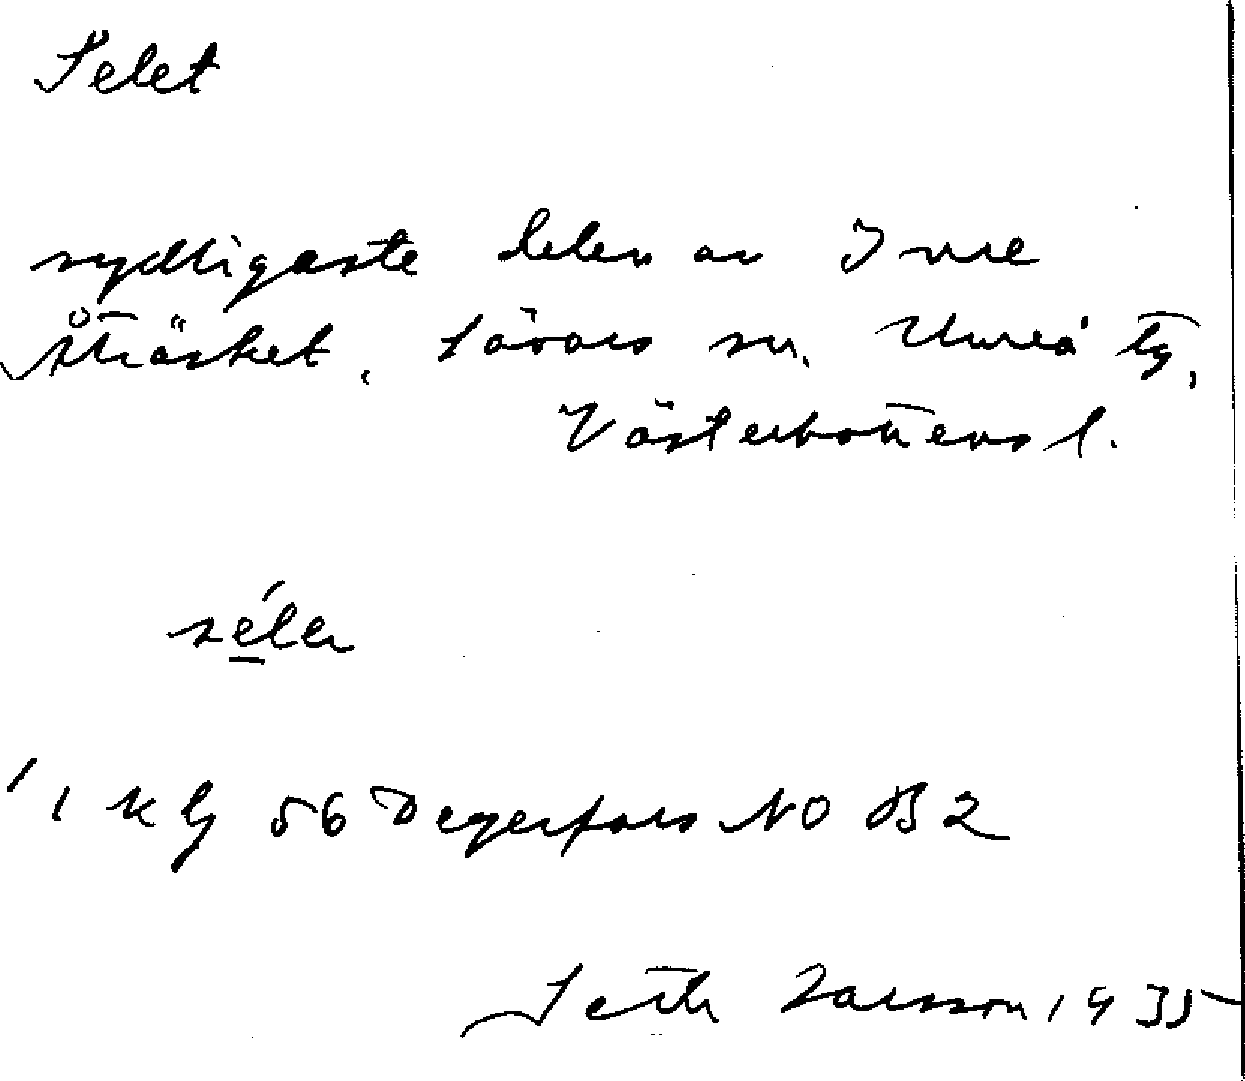 Selet
sydligaste delen av Inre
Åträsket, Sävars sn, Umeå tg,
Västerbottens l.
sélen
1 k bl 56 Degerfors NO B 2
Seth Larsson 1935